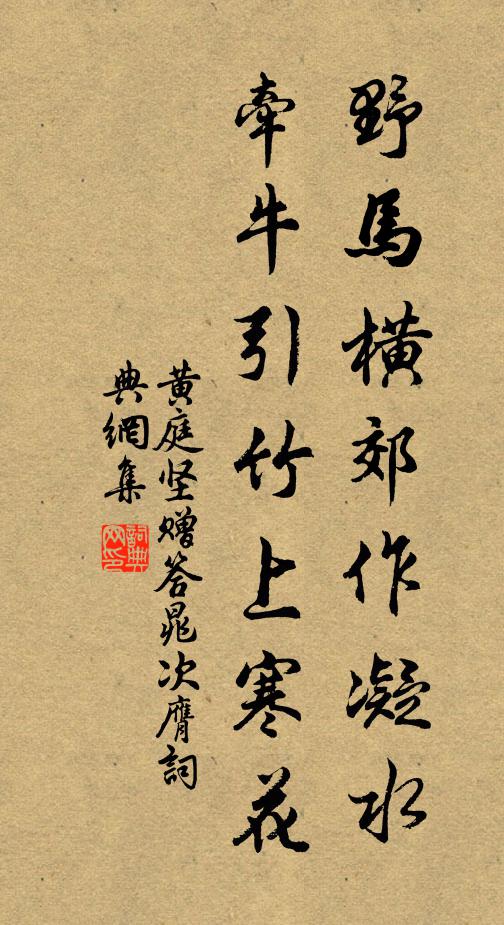 野馬橫郊作凝水
牽牛引竹上寒花
黄庭坚贈答晁次膺詞
典網集
詞典网印